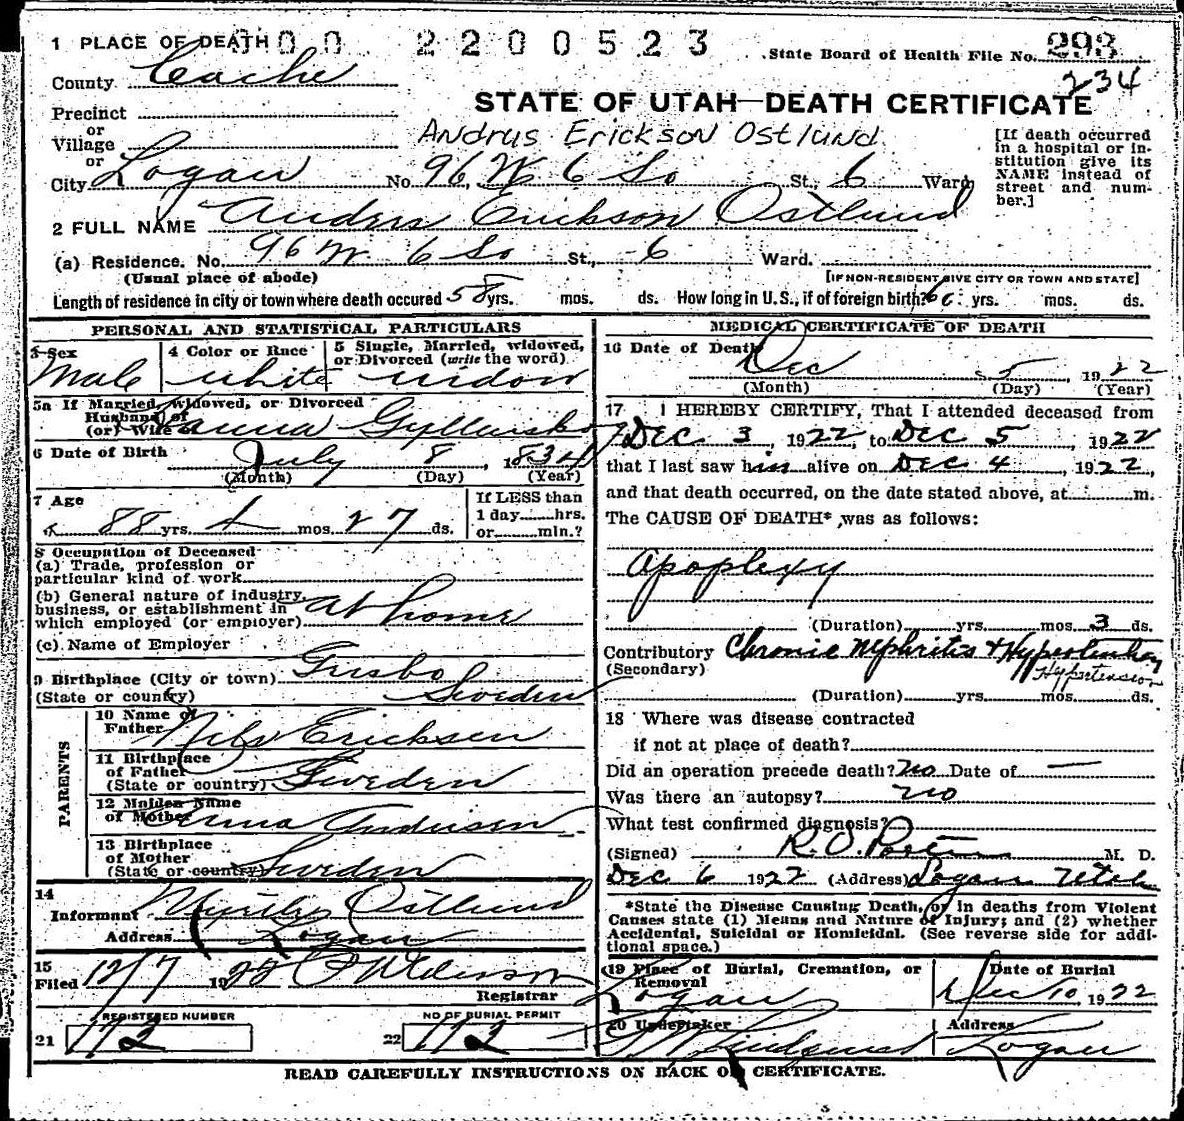 1 PLACE OF DEATH 00 2200523
State Board of Health File No. 293
County Cache 234
Precinct
STATE OF UTAH—DEATH CERTIFICATE
or
Village
Andrus Erickson Ostlund
[If death occurred in a hospital or institution give its NAME instead of street and number.]
or
City Logan No. 96 W 6 So St., 6 Ward
2 FULL NAME Anders Erickson Ostlund
(a) Residence. No. 96 W 6 So St., 6 Ward.
(Usual place of abode) [IF NON-RESIDENT GIVE CITY OR TOWN AND STATE]
Length of residence in city or town where death occured 58 yrs. mos. ds. How long in U.S., if of foreign birth? yrs. mos. ds.
PERSONAL AND STATISTICAL PARTICULARS
3 Sex 4 Color or Race 5 Single, Married, widowed,
or Divorced (write the word)
Male white widow
5a If Married, widowed, or Divorced
Husband of
(or) Wife of
6 Date of Birth July 8, 1834
(Month) (Day) (Year)
7 Age If LESS than
88 yrs. 4 mos. 27 ds. 1 day......hrs.
or......min.?
8 Occupation of Deceased
(a) Trade, profession or
particular kind of work
(b) General nature of industry,
business, or establishment in
which employed (or employer) at home
(c) Name of Employer
9 Birthplace (City or town)
(State or country) Sweden
PARENTS
10 Name of
Father Nils Ericksen
11 Birthplace
of Father
(State or country) Sweden
12 Maiden Name
of Mother Andersen
13 Birthplace
of Mother
(State or country) Sweden
14
Informant Ostlund
Address Logan
15
Filed 12/7 1922
Registrar
REGISTERED NUMBER NO OF BURIAL PERMIT
21 172 22 172
MEDICAL CERTIFICATE OF DEATH
16 Date of Death
Dec 5, 1922
(Month) (Day) (Year)
17 I HEREBY CERTIFY, That I attended deceased from
Dec 3, 1922, to Dec 5, 1922
that I last saw him alive on Dec 4, 1922,
and that death occurred, on the date stated above, at m.
The CAUSE OF DEATH* was as follows:
Apoplexy
(Duration) yrs. mos. 3 ds.
Contributory Chronic Nephritis & Hypertension
(Secondary) Hypertension
(Duration) yrs. mos. ds.
18 Where was disease contracted
if not at place of death?
Did an operation precede death? no Date of —
Was there an autopsy? no
What test confirmed diagnosis?
(Signed) R. O. Porter M. D.
Dec 6 1922 (Address) Logan Utah
*State the Disease Causing Death, or in deaths from Violent
Causes state (1) Means and Nature of Injury; and (2) whether
Accidental, Suicidal or Homicidal. (See reverse side for addi-
tional space.)
19 Place of Burial, Cremation, or Date of Burial
Removal
Logan Dec 10 1922
20 Undertaker Address
Lindquist Logan
READ CAREFULLY INSTRUCTIONS ON BACK OF CERTIFICATE.